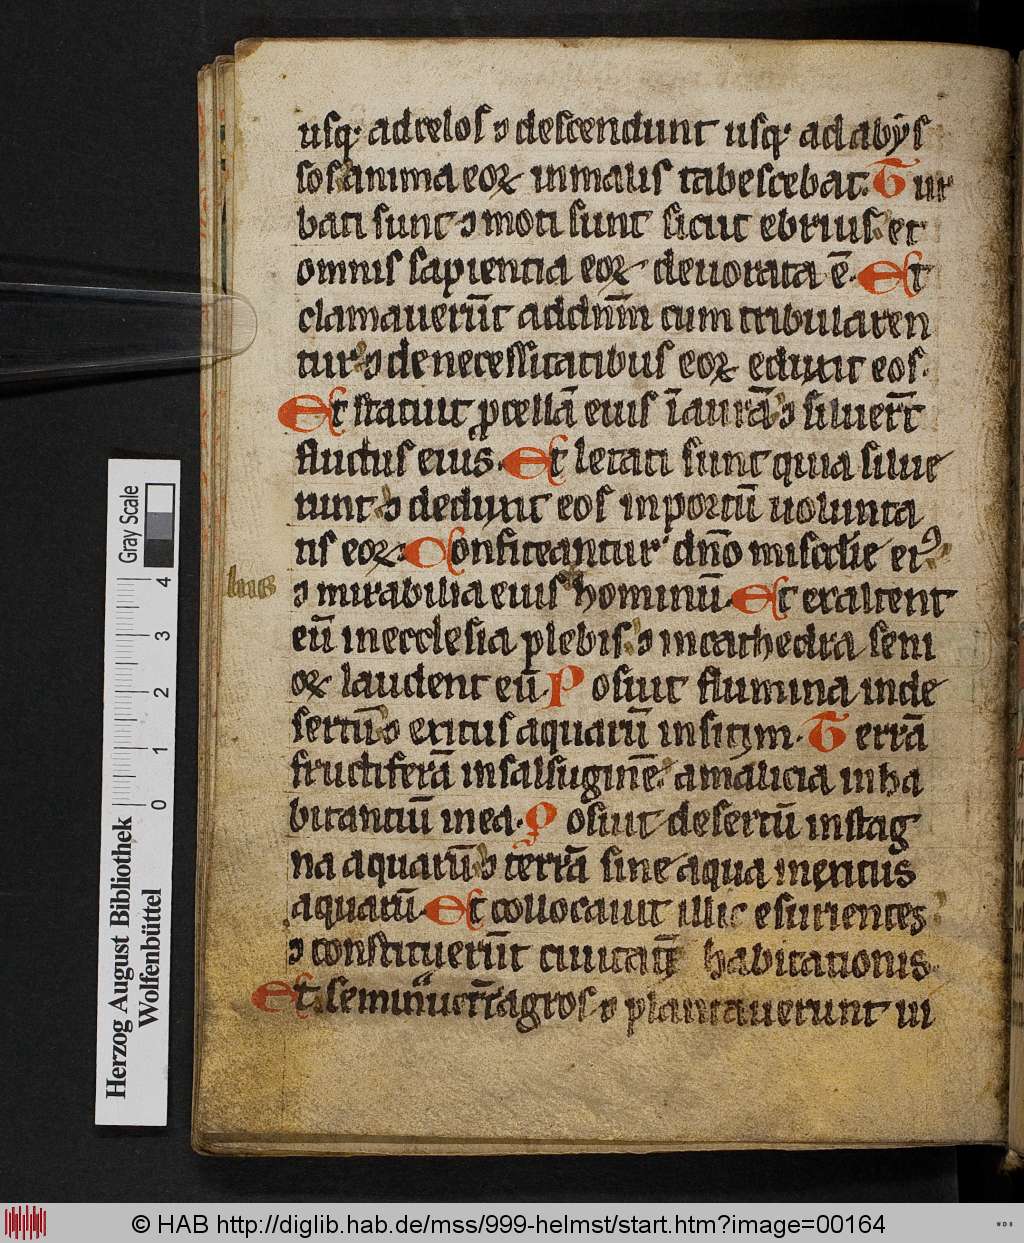 usq; ad celos ⁊ descendunt usq; ad abẏs
sos anima eoꝝ in malis tabescebat. Tur
bati sunt ⁊ moti sunt sicut ebrius et
omnis sapientia eoꝝ deuorata ē. Et
clamauerūt ad dn̄m cum tribularen
tur ⁊ de necessitatibus eoꝝ eduxit eos.
Et statuit ꝓcellā eius ī aurā ⁊ siluer̄t
fluctus eius. Et letati sunt quia silue
runt ⁊ deduxit eos in portū uolunta
tis eoꝝ. Confiteantur dn̄o mīscd̄ie eiꝰ
⁊ mirabilia eius hominū. Et exaltent
eū in ecclesia plebis ⁊ in cathedra seni
oꝝ laudent eū. Posuit flumina in de
sertū ⁊ exitus aquarū in sitym. Terrā
fructiferā in salsuginē a malicia inha
bitantiū in ea. Posuit desertū in stag
na aquarū ⁊ terrā sine aqua in exitus
aquarū. Et collocauit illic esurientes
⁊ constituerūt ciuitatē habitationis
Et seminauer̄t agros ⁊ plantauerunt ui
Gray Scale
4
3
2
1
0
Herzog August Bibliothek
Wolfenbüttel
© HAB http://diglib.hab.de/mss/999-helmst/start.htm?image=00164
WDB